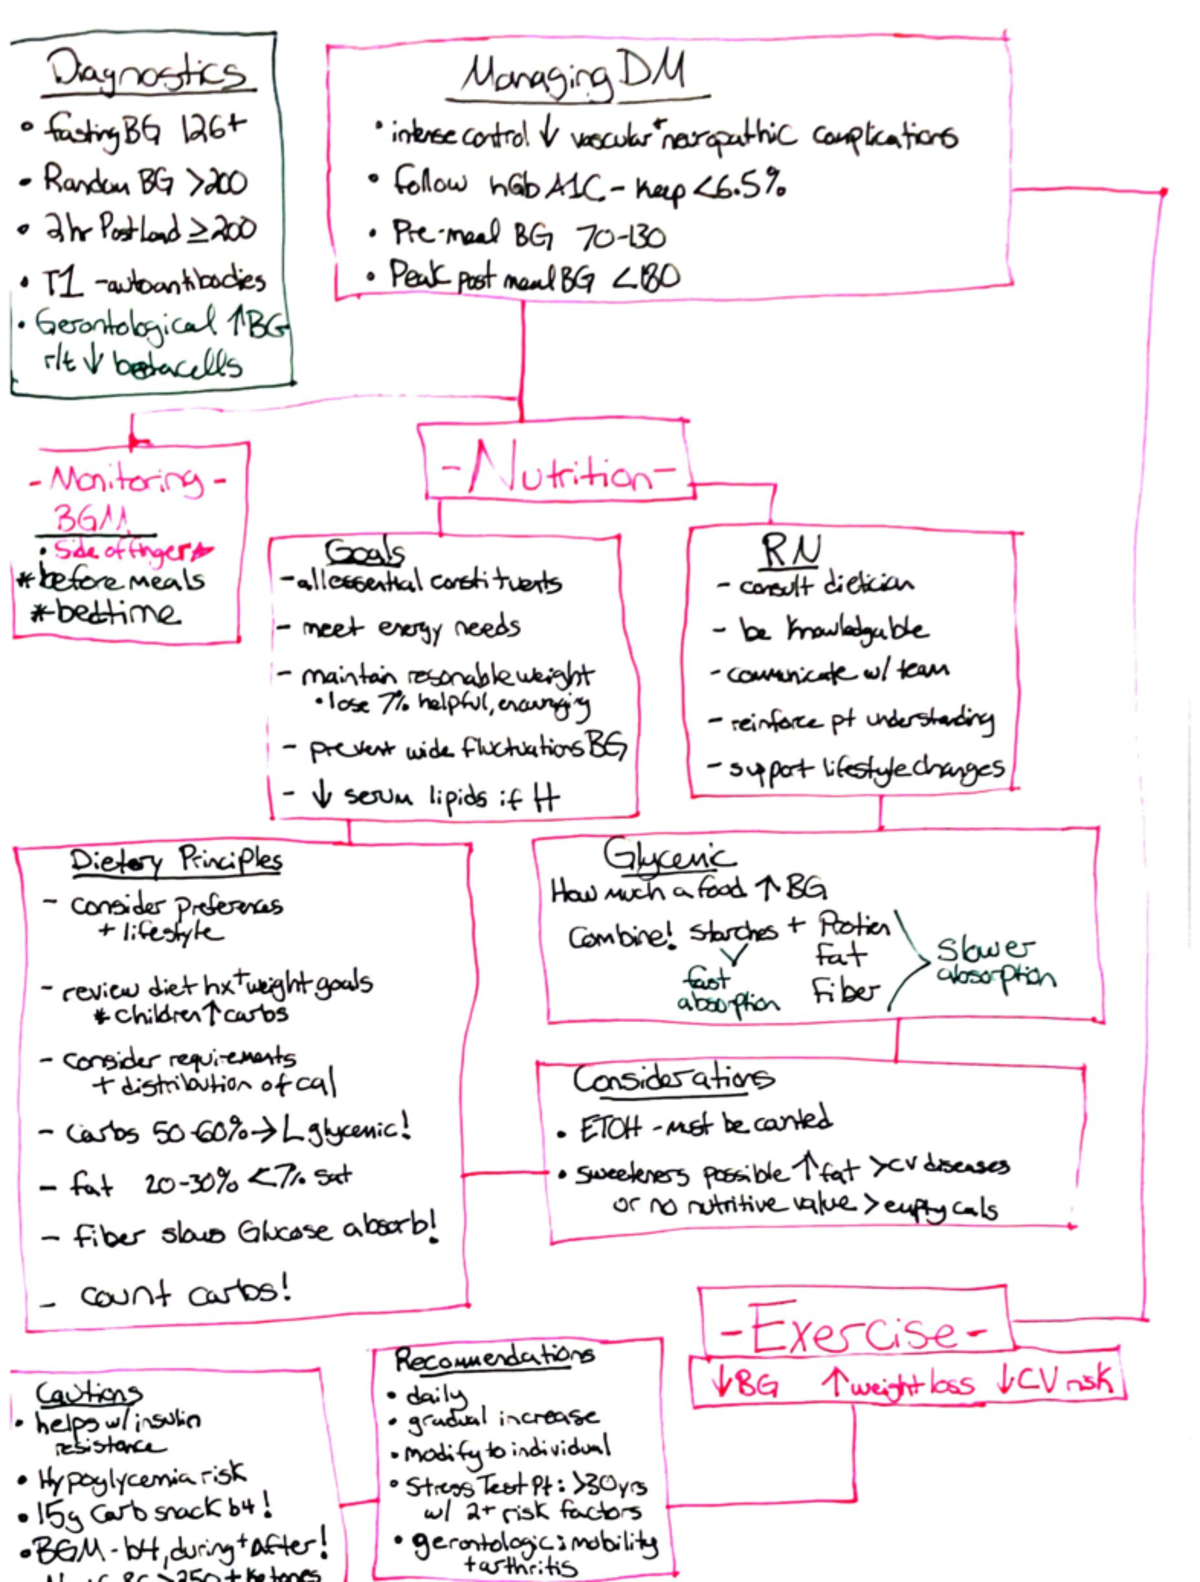 Diagnostics
• fasting BG 126+
• Random BG >200
• 2hr Post Load ≥200
• T1 - autoantibodies
• Gerontological ↑BG
r/t ↓ betacells
Managing DM
• intense control ↓ vascular + neuropathic complications
• follow hGb A1C - keep <6.5%
• Pre-meal BG 70-130
• Peak post meal BG <180
- Monitoring -
BGM
• Side of finger
* before meals
* bedtime
- Nutrition -
Goals
- all essential constituents
- meet energy needs
- maintain resonable weight
• lose 7% helpful, encouraging
- prevent wide fluctuations BG
- ↓ serum lipids if H
RN
- consult dietician
- be knowledgable
- communicate w/ team
- reinforce pt understanding
- support lifestyle changes
Dietary Principles
- consider preferences
+ lifestyle
- review diet hx + weight goals
* children ↑ carbs
- consider requirements
+ distribution of cal
- Carbs 50-60% → L glycemic!
- fat 20-30% <7% sat
- fiber slows Glucose absorb!
- count carbs!
Glycemic
How much a food ↑ BG
Combine! starches + Protien
fat
Fiber
fast
absorption
Slower
absorption
Considerations
• ETOH - must be counted
• sweeteners possible ↑ fat >CV diseases
or no nutritive value > empty cals
- Exercise -
↓BG ↑weight loss ↓CV risk
Recommendations
• daily
• gradual increase
• modify to individual
• Stress Test Pt: >30yrs
w/ 2+ risk factors
• gerontologic: mobility
+ arthritis
Cautions
• helps w/ insulin
resistance
• Hypoglycemia risk
• 15g Carb snack b4!
• BGM - b4, during + After!
BG >250 + ketones